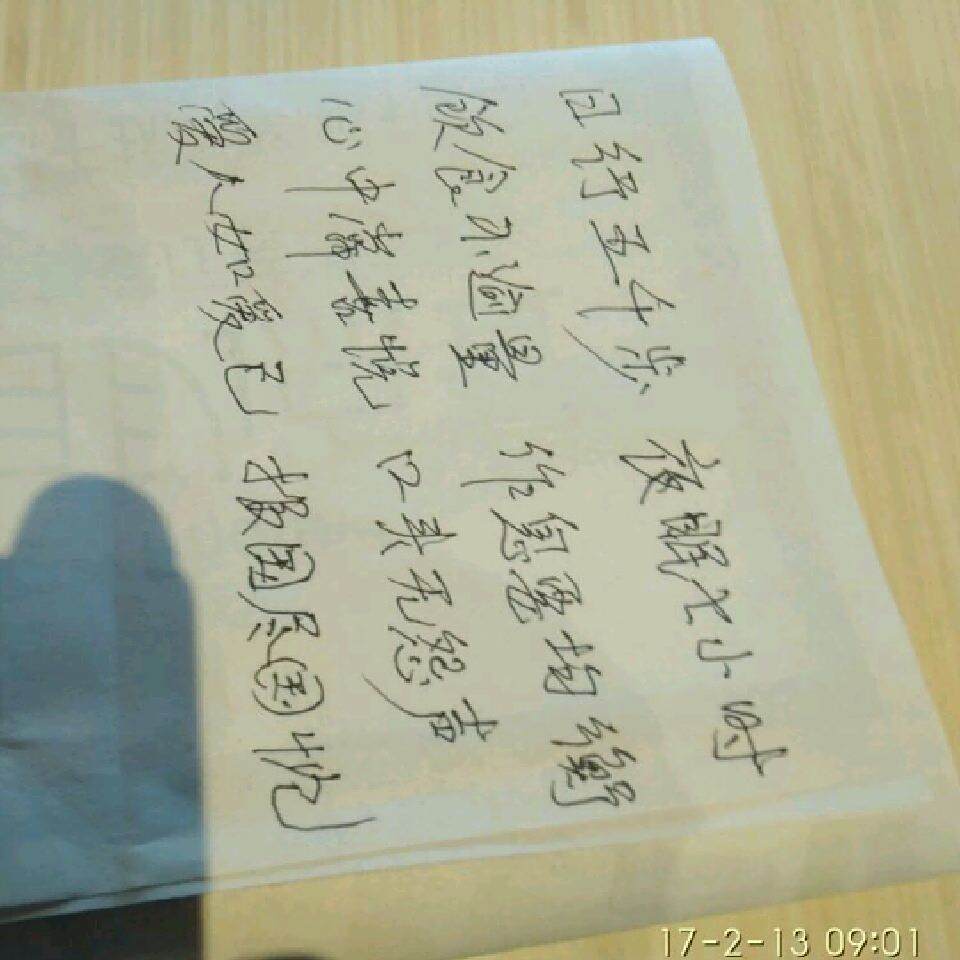 日行五千步 夜眠七小时
饮食不逾量 作息要均衡
心中常喜悦 口头无怨声
爱人如爱己 报国尽国忧
17-2-13 09:01